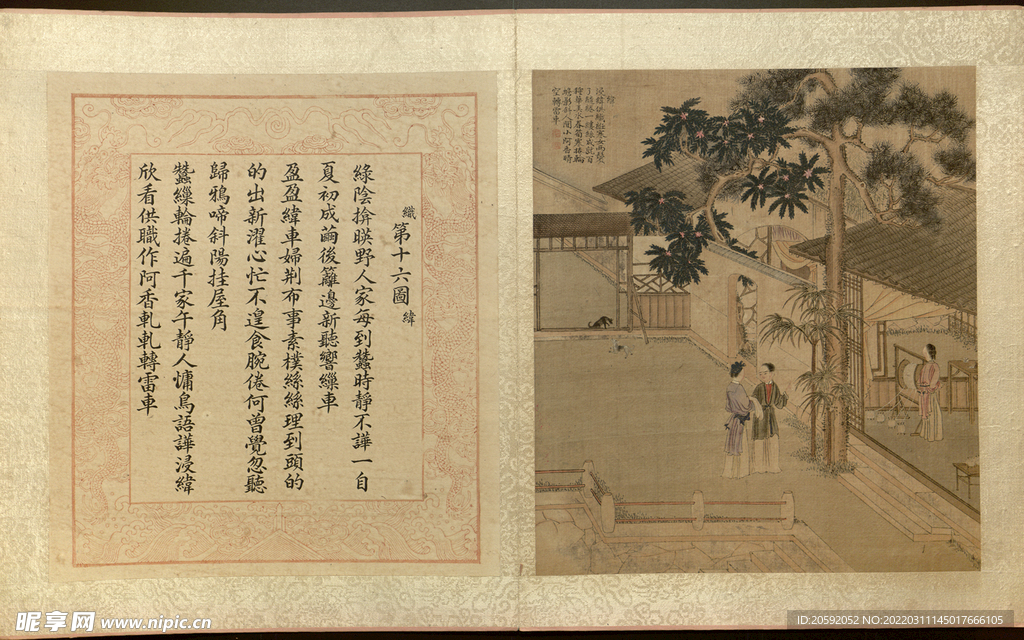 織第十六圖緯
綠陰揜暎野人家每到蠶時靜不譁一自
夏初成繭後籬邊新聽響繅車
盈盈緯車婦荆布事素樸絲絲理到頭的
的出新濯心忙不遑食腕倦何曽覺忽聽
歸鴉啼斜陽挂屋角
蠶繅輪捲遍千家午靜人慵鳥語譁浸緯
欣看供職作阿香軋軋轉雷車
昵享网 www.nipic.cn
ID:20592052 NO:20220311145017666105